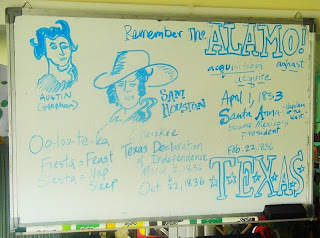 Remember The ALAMO!
acquisition aghast
acquire
AUSTIN
(Stephen)
SAM
HOUSTON
April 1, 1833
Santa Anna - Napoleon
of the
West
became Mexico's
president
Oo-loo-te-ka
Cherokee
Fiesta = Feast
Siesta = Nap
Sleep
Texas Declaration
of Independence
March 2, 1836
Oct. 22, 1836
Feb. 23, 1836
TEXAS